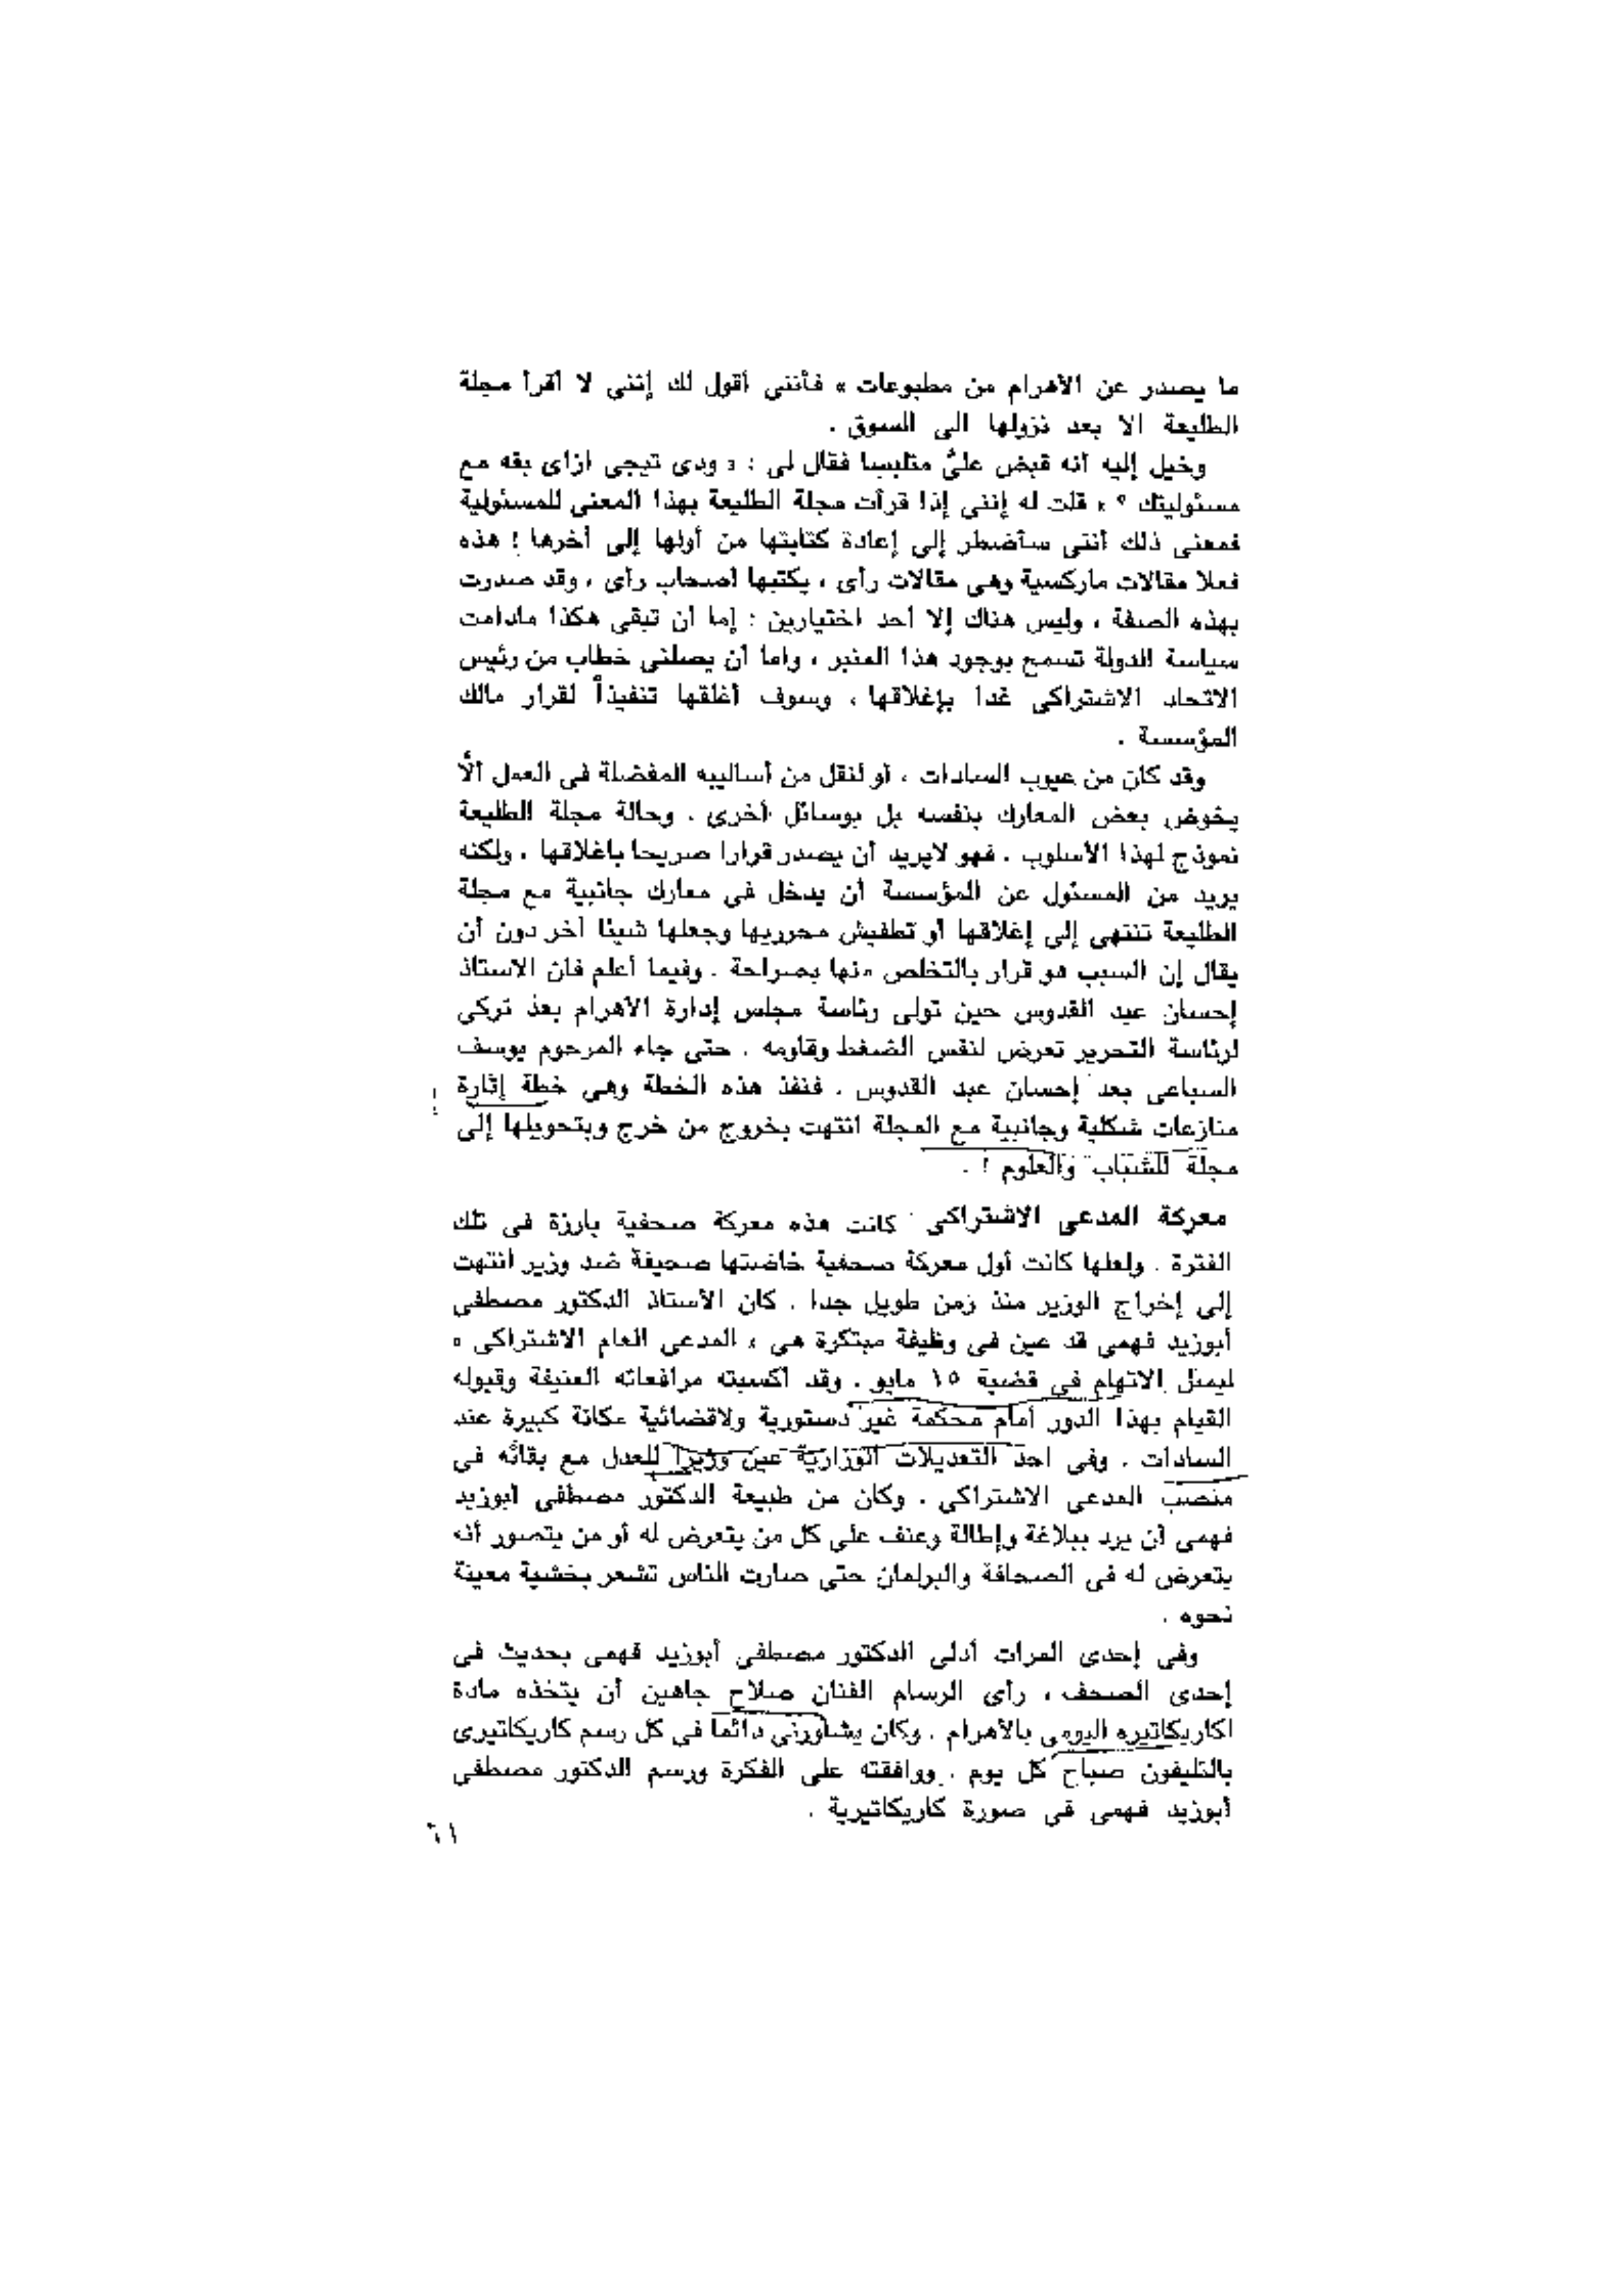 ما يصدر عن الأهرام من مطبوعات » فأننى أقول لك إننى لا أقرأ مجلة
الطليعة الا بعد نزولها الى السوق .
وخيل إليه أنه قبض علىَّ متلبسا فقال لى : « ودى تيجى ازاى بقه مع
مسئوليتك ؟ » قلت له إننى إذا قرأت مجلة الطليعة بهذا المعنى للمسئولية
فمعنى ذلك أننى سأضطر إلى إعادة كتابتها من أولها إلى أخرها ! هذه
فعلا مقالات ماركسية وهى مقالات رأى ، يكتبها أصحاب رأى ، وقد صدرت
بهذه الصفة ، وليس هناك إلا أحد اختيارين : إما أن تبقى هكذا مادامت
سياسة الدولة تسمح بوجود هذا المنبر ، واما أن يصلنى خطاب من رئيس
الاتحاد الاشتراكى غدا بإغلاقها ، وسوف أغلقها تنفيذاً لقرار مالك
المؤسسة .
وقد كان من عيوب السادات ، أو لنقل من أساليبه المفضلة فى العمل ألاَّ
يخوض بعض المعارك بنفسه بل بوسائل أخرى . وحالة مجلة الطليعة
نموذج لهذا الأسلوب . فهو لايريد أن يصدر قرارا صريحا باغلاقها ، ولكنه
يريد من المسئول عن المؤسسة أن يدخل فى معارك جانبية مع مجلة
الطليعة تنتهى إلى إغلاقها أو تطفيش محرريها وجعلها شيئا أخر دون أن
يقال إن السبب هو قرار بالتخلص منها بصراحة . وفيما أعلم فان الاستاذ
إحسان عبد القدوس حين تولى رئاسة مجلس إدارة الأهرام بعد تركى
لرئاسة التحرير تعرض لنفس الضغط وقاومه . حتى جاء المرحوم يوسف
السباعى بعد إحسان عبد القدوس . فنفذ هذه الخطة وهى خطة إثارة
منازعات شكلية وجانبية مع المجلة انتهت بخروج من خرج وبتحويلها إلى
مجلة للشباب والعلوم ! .
معركة المدعى الاشتراكى كانت هذه معركة صحفية بارزة فى تلك
الفترة . ولعلها كانت أول معركة صحفية خاضتها صحيفة ضد وزير انتهت
إلى إخراج الوزير منذ زمن طويل جدا . كان الأستاذ الدكتور مصطفى
أبوزيد فهمى قد عين فى وظيفة مبتكرة هى « المدعى العام الاشتراكى »
ليمثل الاتهام فى قضية ١٥ مايو . وقد أكسبته مرافعاته العنيفة وقبوله
القيام بهذا الدور أمام محكمة غير دستورية ولاقضائية مكانة كبيرة عند
السادات . وفى احد التعديلات الوزارية عين وزيرا للعدل مع بقائه فى
منصب المدعى الاشتراكى . وكان من طبيعة الدكتور مصطفى أبوزيد
فهمى أن يرد ببلاغة وإطالة وعنف على كل من يتعرض له أو من يتصور أنه
يتعرض له فى الصحافة والبرلمان حتى صارت الناس تشعر بخشية معينة
نحوه .
وفى إحدى المرات أدلى الدكتور مصطفى أبوزيد فهمى بحديث فى
إحدى الصحف ، رأى الرسام الفنان صلاح جاهين أن يتخذه مادة
لكاريكاتيره اليومى بالأهرام . وكان يشاورنى دائما فى كل رسم كاريكاتيرى
بالتليفون صباح كل يوم . ووافقته على الفكرة ورسم الدكتور مصطفى
أبوزيد فهمى فى صورة كاريكاتيرية .
٦١